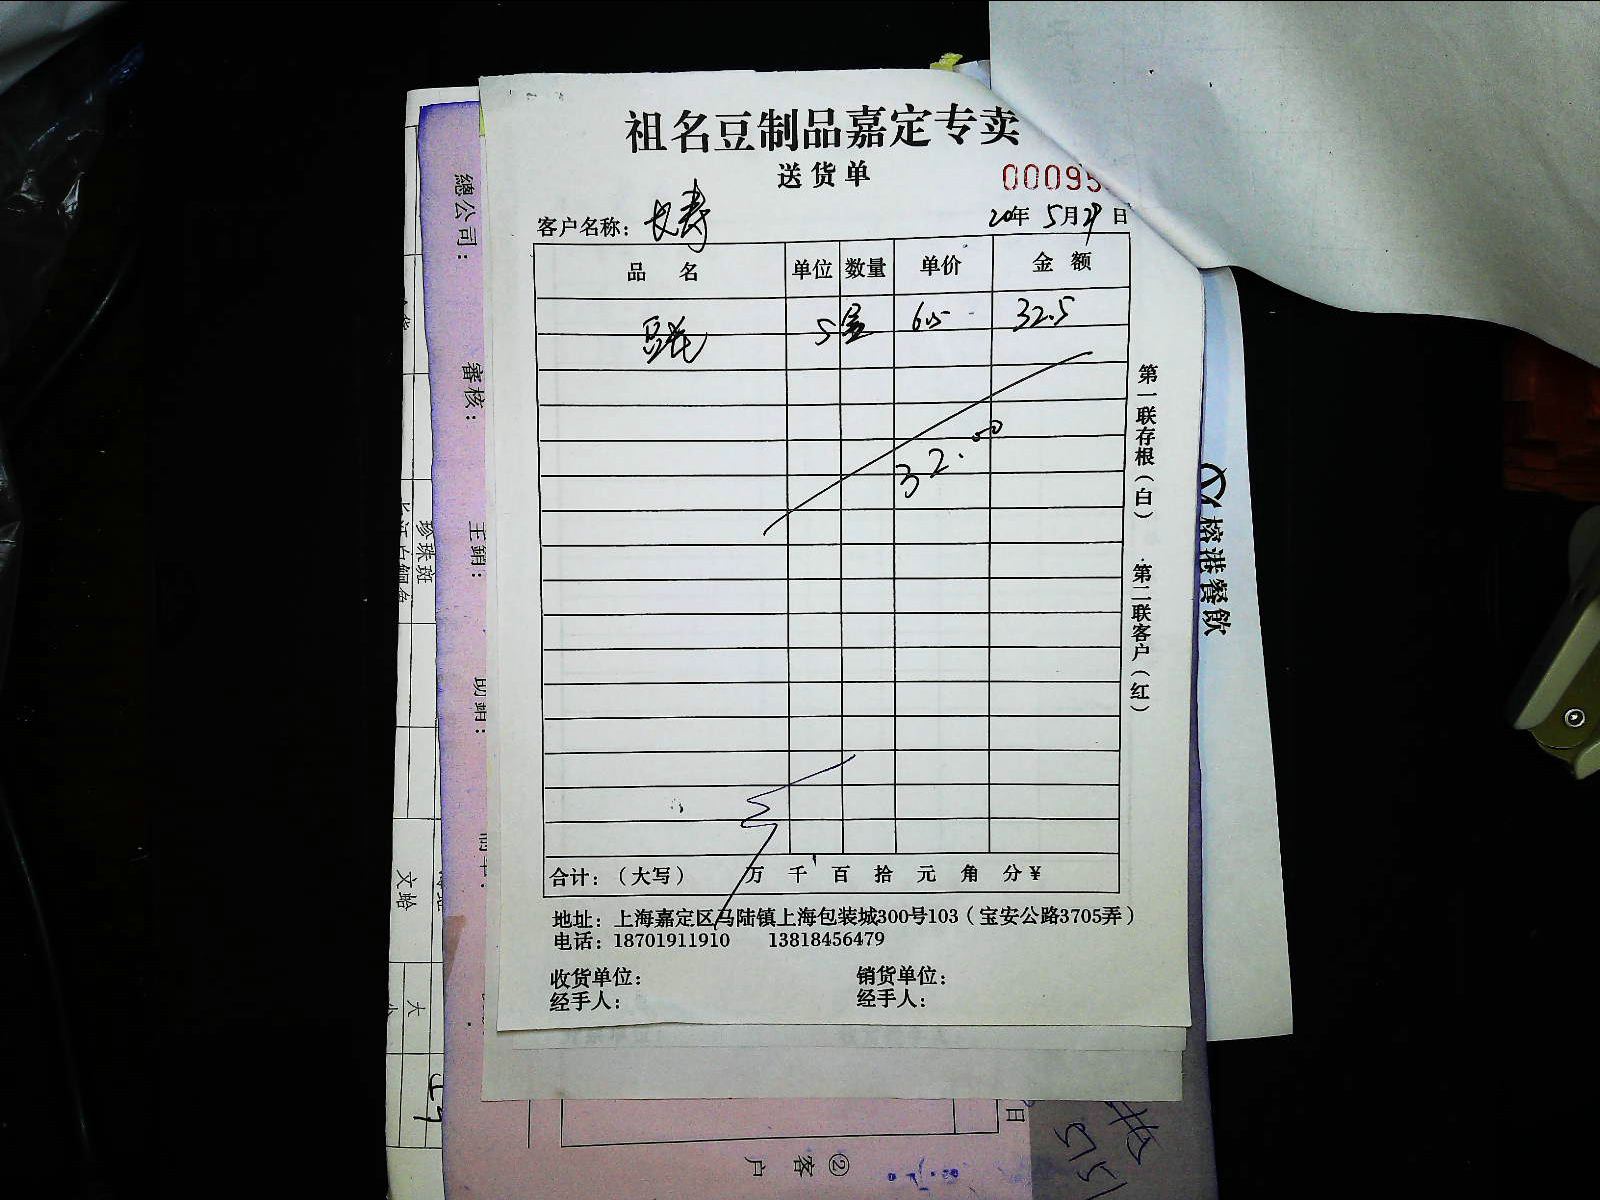 祖名豆制品嘉定专卖
送货单
00095
客户名称：长寿 20年5月29日
品名 单位 数量 单价 金额
5盒 6.5 32.5
32.00
合计：（大写） 万 千 百 拾 元 角 分¥
地址：上海嘉定区马陆镇上海包装城300号103（宝安公路3705弄）
电话：18701911910 13818456479
收货单位： 销货单位：
经手人： 经手人：
第一联存根（白） 第二联客户（红）
榕港餐飲
總公司：
審核：
主銷：
助銷：
珍珠斑
文蛤
大
日
②客户